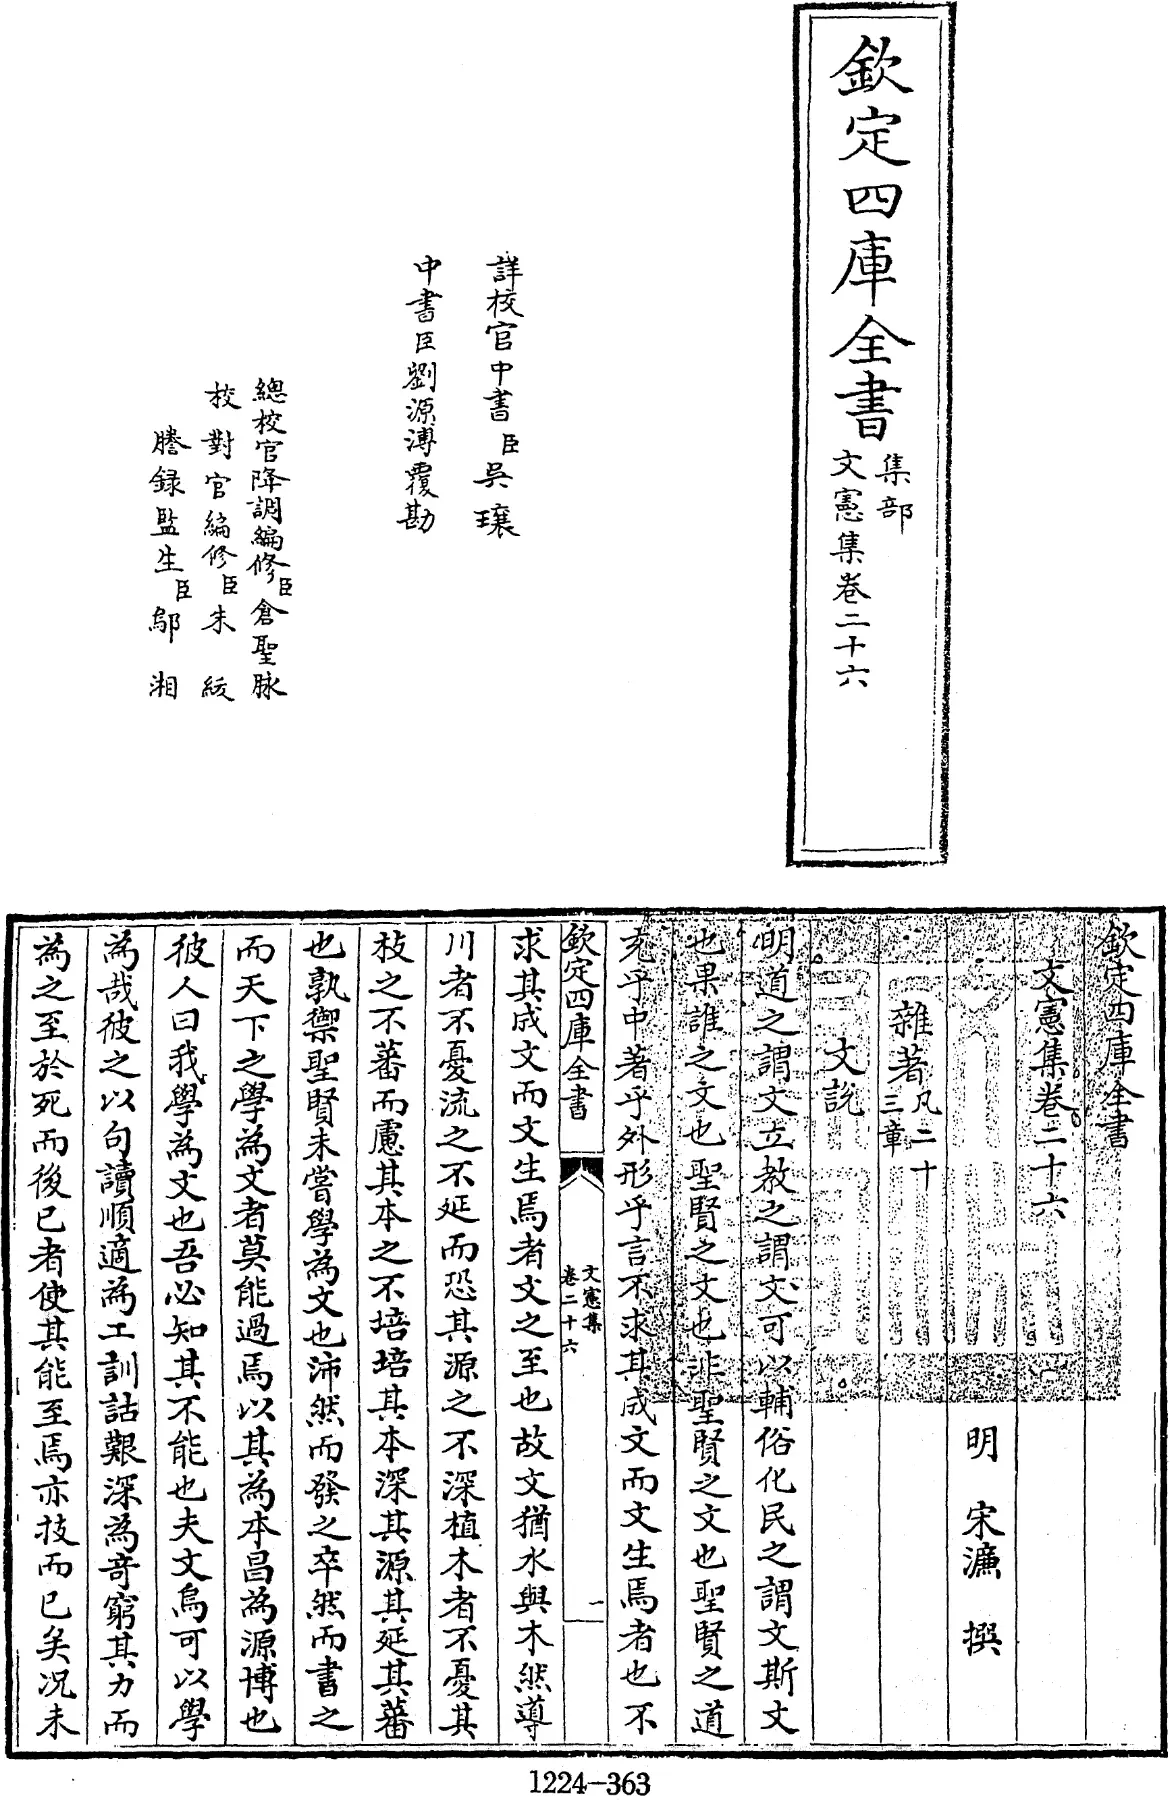 欽定四庫全書
集部
文憲集卷二十六
詳校官中書臣吳瓖
中書臣劉源溥覆勘
總校官降調編修臣倉聖脉
校對官編修臣朱綬
謄錄監生臣鄔湘
欽定四庫全書
文憲集卷二十六
明 宋濂 撰
雜著凡二十三章
文說
明道之謂文立教之謂文可以輔俗化民之謂文斯文
也果誰之文也聖賢之文也非聖賢之文也聖賢之道
充乎中著乎外形乎言不求其成文而文生焉者也不
欽定四庫全書
文憲集
卷二十六
一
求其成文而文生焉者文之至也故文猶水與木然導
川者不憂流之不延而恐其源之不深植木者不憂其
枝之不蕃而慮其本之不培培其本深其源其延其蕃
也孰禦聖賢未嘗學為文也沛然而發之卒然而書之
而天下之學為文者莫能過焉以其為本昌為源博也
彼人曰我學為文也吾必知其不能也夫文烏可以學
為哉彼之以句讀順適為工訓詁艱深為奇窮其力而
為之至於死而後已者使其能至焉亦技而已矣况未
1224-363